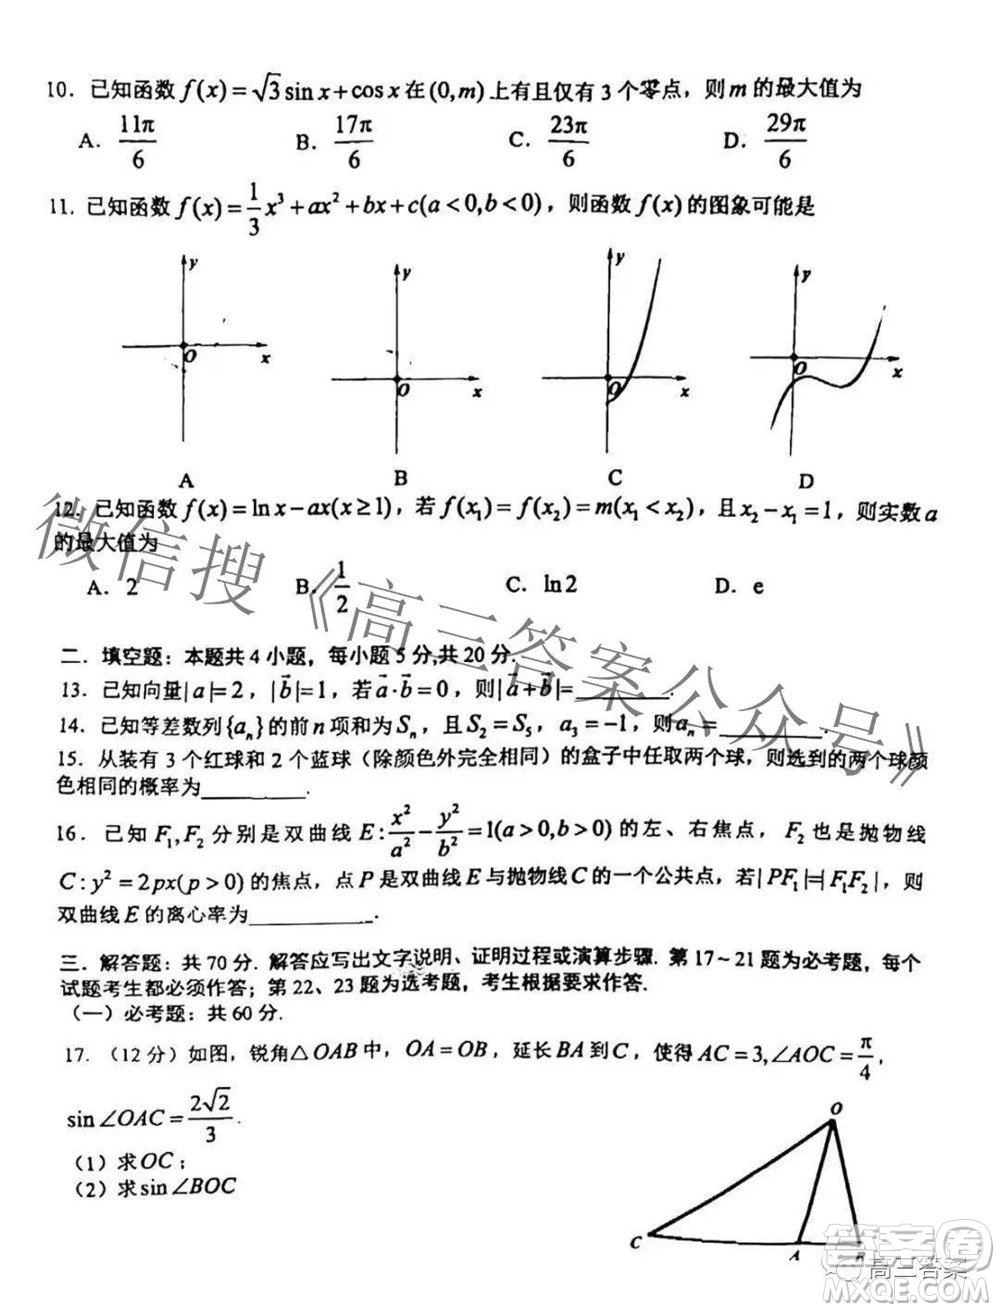 10．已知函数 f(x)=√3sinx+cosx 在 (0,m) 上有且仅有 3 个零点，则 m 的最大值为
A．11π/6 B．17π/6 C．23π/6 D．29π/6
11. 已知函数 f(x)=1/3x³+ax²+bx+c(a<0,b<0)，则函数 f(x) 的图象可能是
y y y y
O x O x O x O x
A B C D
12. 已知函数 f(x)=lnx-ax(x≥1)，若 f(x₁)=f(x₂)=m(x₁<x₂)，且 x₂-x₁=1，则实数 a
的最大值为
A．2 B．1/2 C．ln2 D．e
二．填空题：本题共 4 小题，每小题 5 分,共 20 分.
13．已知向量|a|=2，|b⃗|=1，若 a⃗·b⃗=0，则|a⃗+b⃗|=________.
14．已知等差数列{aₙ}的前 n 项和为 Sₙ，且 S₂=S₅，a₃=-1，则 aₙ=________.
15．从装有 3 个红球和 2 个蓝球（除颜色外完全相同）的盒子中任取两个球，则选到的两个球颜
色相同的概率为________.
16．已知 F₁,F₂ 分别是双曲线 E:x²/a²-y²/b²=1(a>0,b>0) 的左、右焦点，F₂ 也是抛物线
C:y²=2px(p>0) 的焦点，点 P 是双曲线 E 与抛物线 C 的一个公共点，若|PF₁|=|F₁F₂|，则
双曲线 E 的离心率为________.
三．解答题：共 70 分. 解答应写出文字说明、证明过程或演算步骤. 第 17～21 题为必考题，每个
试题考生都必须作答；第 22、23 题为选考题，考生根据要求作答.
（一）必考题：共 60 分.
17．（12 分）如图，锐角△OAB 中，OA=OB，延长 BA 到 C，使得 AC=3,∠AOC=π/4，
sin∠OAC=2√2/3.
（1）求 OC；
（2）求 sin∠BOC
O
C A B
微信搜《高三答案公众号》
答案卷
高三答案
MXQE.COM